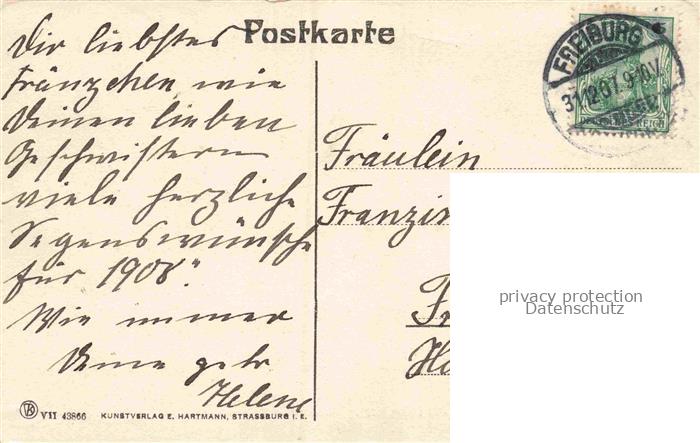 Postkarte
Dir liebstes
Fränzchen, wie
Deinen lieben
Geschwistern
viele herzliche
Segenswünsche
für 1908."
Wie immer
Deine getr.
Helene
VII 43866 KUNSTVERLAG E. HARTMANN, STRASSBURG i. E.
FREIBURG
31.12.07. 9-10.V.
Fräulein
Franzin
privacy protection
Datenschutz